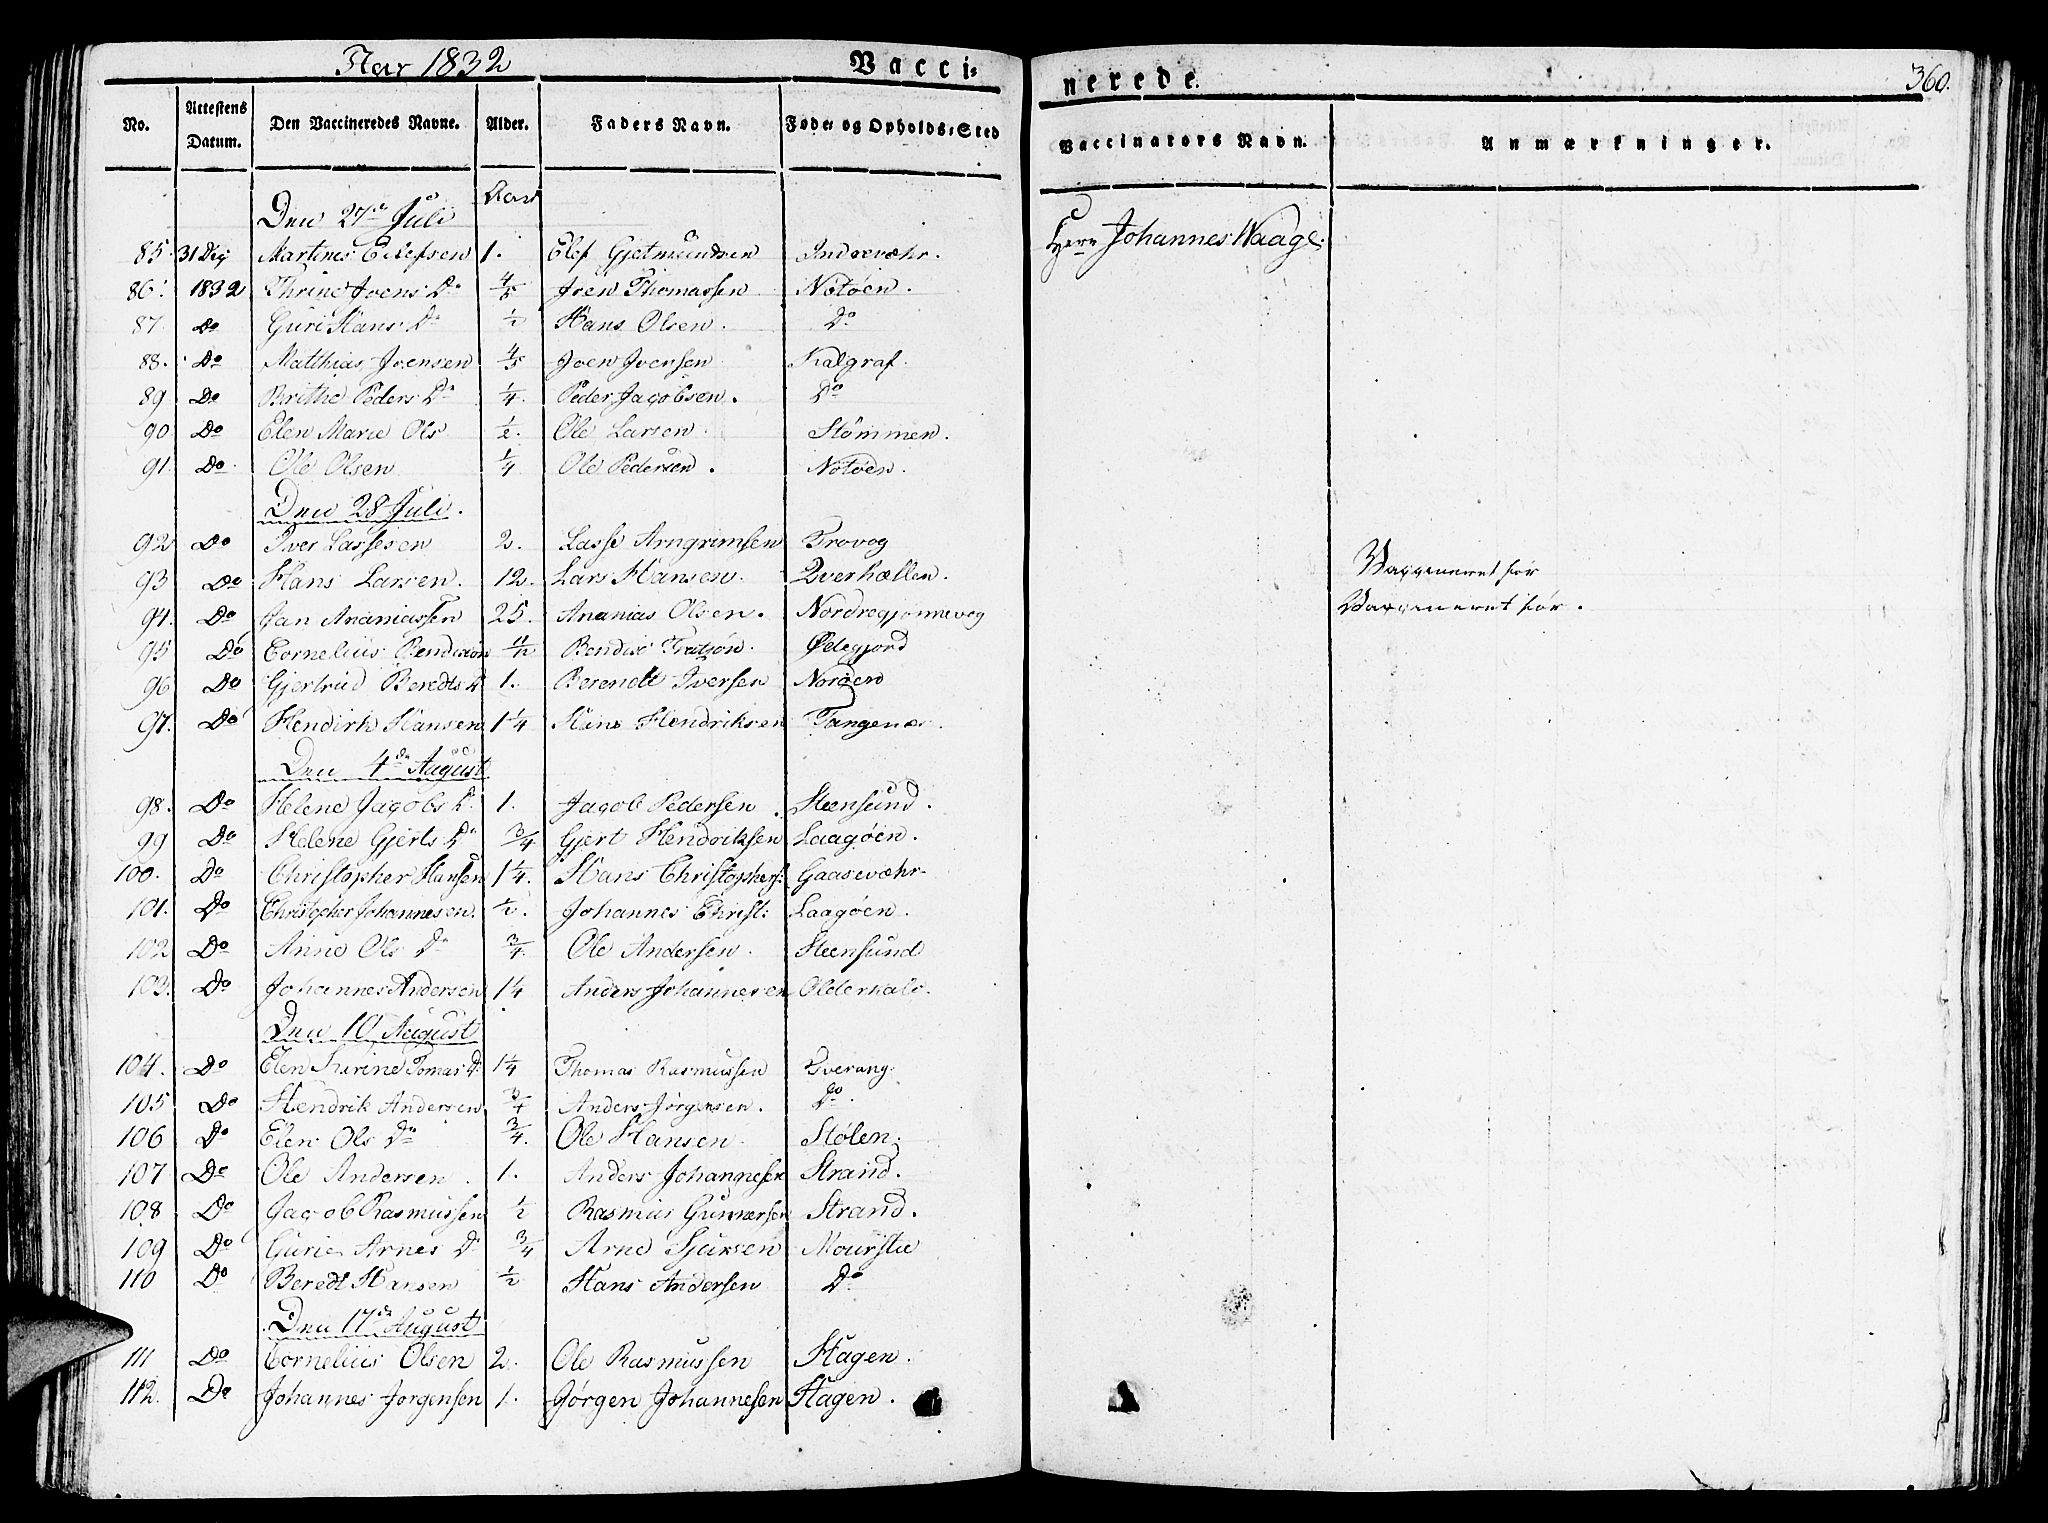 Aar 1832 Vacci= nerede. 360.
No. Attestens Datum. Den Vaccineredes Navne. Alder. Faders Navn. Føde- og Opholds-Sted Vaccinators Navn. Anmærkninger.
Aar
Den 27de Juli
85. 31 Dec Martines Elefsen 1. Elef Gjetmundsen Indrevæhr. Herr Johannes Waage.
86. 1832 Thrine Joens Dr 4/5 Joen Thomassen Notøen.
87. Do Guri Hans Dr 1/2 Hans Olsen. Do
88. Do Matthias Joensen 4/5 Joen Joensen Kalgraf.
89 Do Brithe Peders Dr 1/4. Peder Jacobsen. Do
90 Do Elen Marie Ols 1/2. Ole Larsen. Stømmen.
91. Do Ole Olsen 1/4 Ole Pedersen. Notøen.
Den 28 Juli.
92 Do Iver Lassesen 2. Lasse Arngrimsen Trovog
93 Do Hans Larsen. 12. Lars Hansen. Qverhællen. Vaccineret før
94. Do Jan Ananiassen 25. Ananias Olsen. Nordregjønnevog Vaccineret før.
95 Do Cornelius Bendixøn Bendix Ødegjord
96 Do Gjertrud Beredts Dr 1. Berendt Iversen Norøen
97. Do Hendirk Hansen 1 1/4 Hans Hendriksen Tangenæs.
Den 4de August
98. Do Helene Jacobs Dr. 1. Jacob Pedersen. Steensund.
99 Do Helene Gjerts Dr 3/4 Gjert Hendriksen Laagøen.
100. Do Christopher Hansen 1 1/4. Hans Christophers: Gaasevæhr.
101. Do Christopher Johannesen. 1/2. Johannes Christ: Laagøen.
102 Do Anne Ols Dr 3/4. Ole Andersen. Steensund
103. Do Johannes Andersen 1 1/4 Anders Johannesen
Den 10 August
104. Do Elen Tomas Dr 1 1/4 Thomas Rasmussen
105 Do Hendrik Andersen 3/4 Anders Jørgensen. Do.
106 Do Elen Ols Dr 3/4. Ole Hansen. Stølen.
107 Do Ole Andersen. 1. Anders Johannesen Strand.
108 Do Jacob Rasmussen 1/2 Rasmus Gunnersen Strand.
109 Do Gurie Arnes Dr 3/4 Arne Sjursen
110 Do Beredt Hansen 1/2 Hans Andersen Do
Den 17de August
111 Do Cornelius Olsen 2. Ole Rasmussen Hagen.
112. Do Johannes Jorgensen 1. Jørgen Johannesen Hagen.